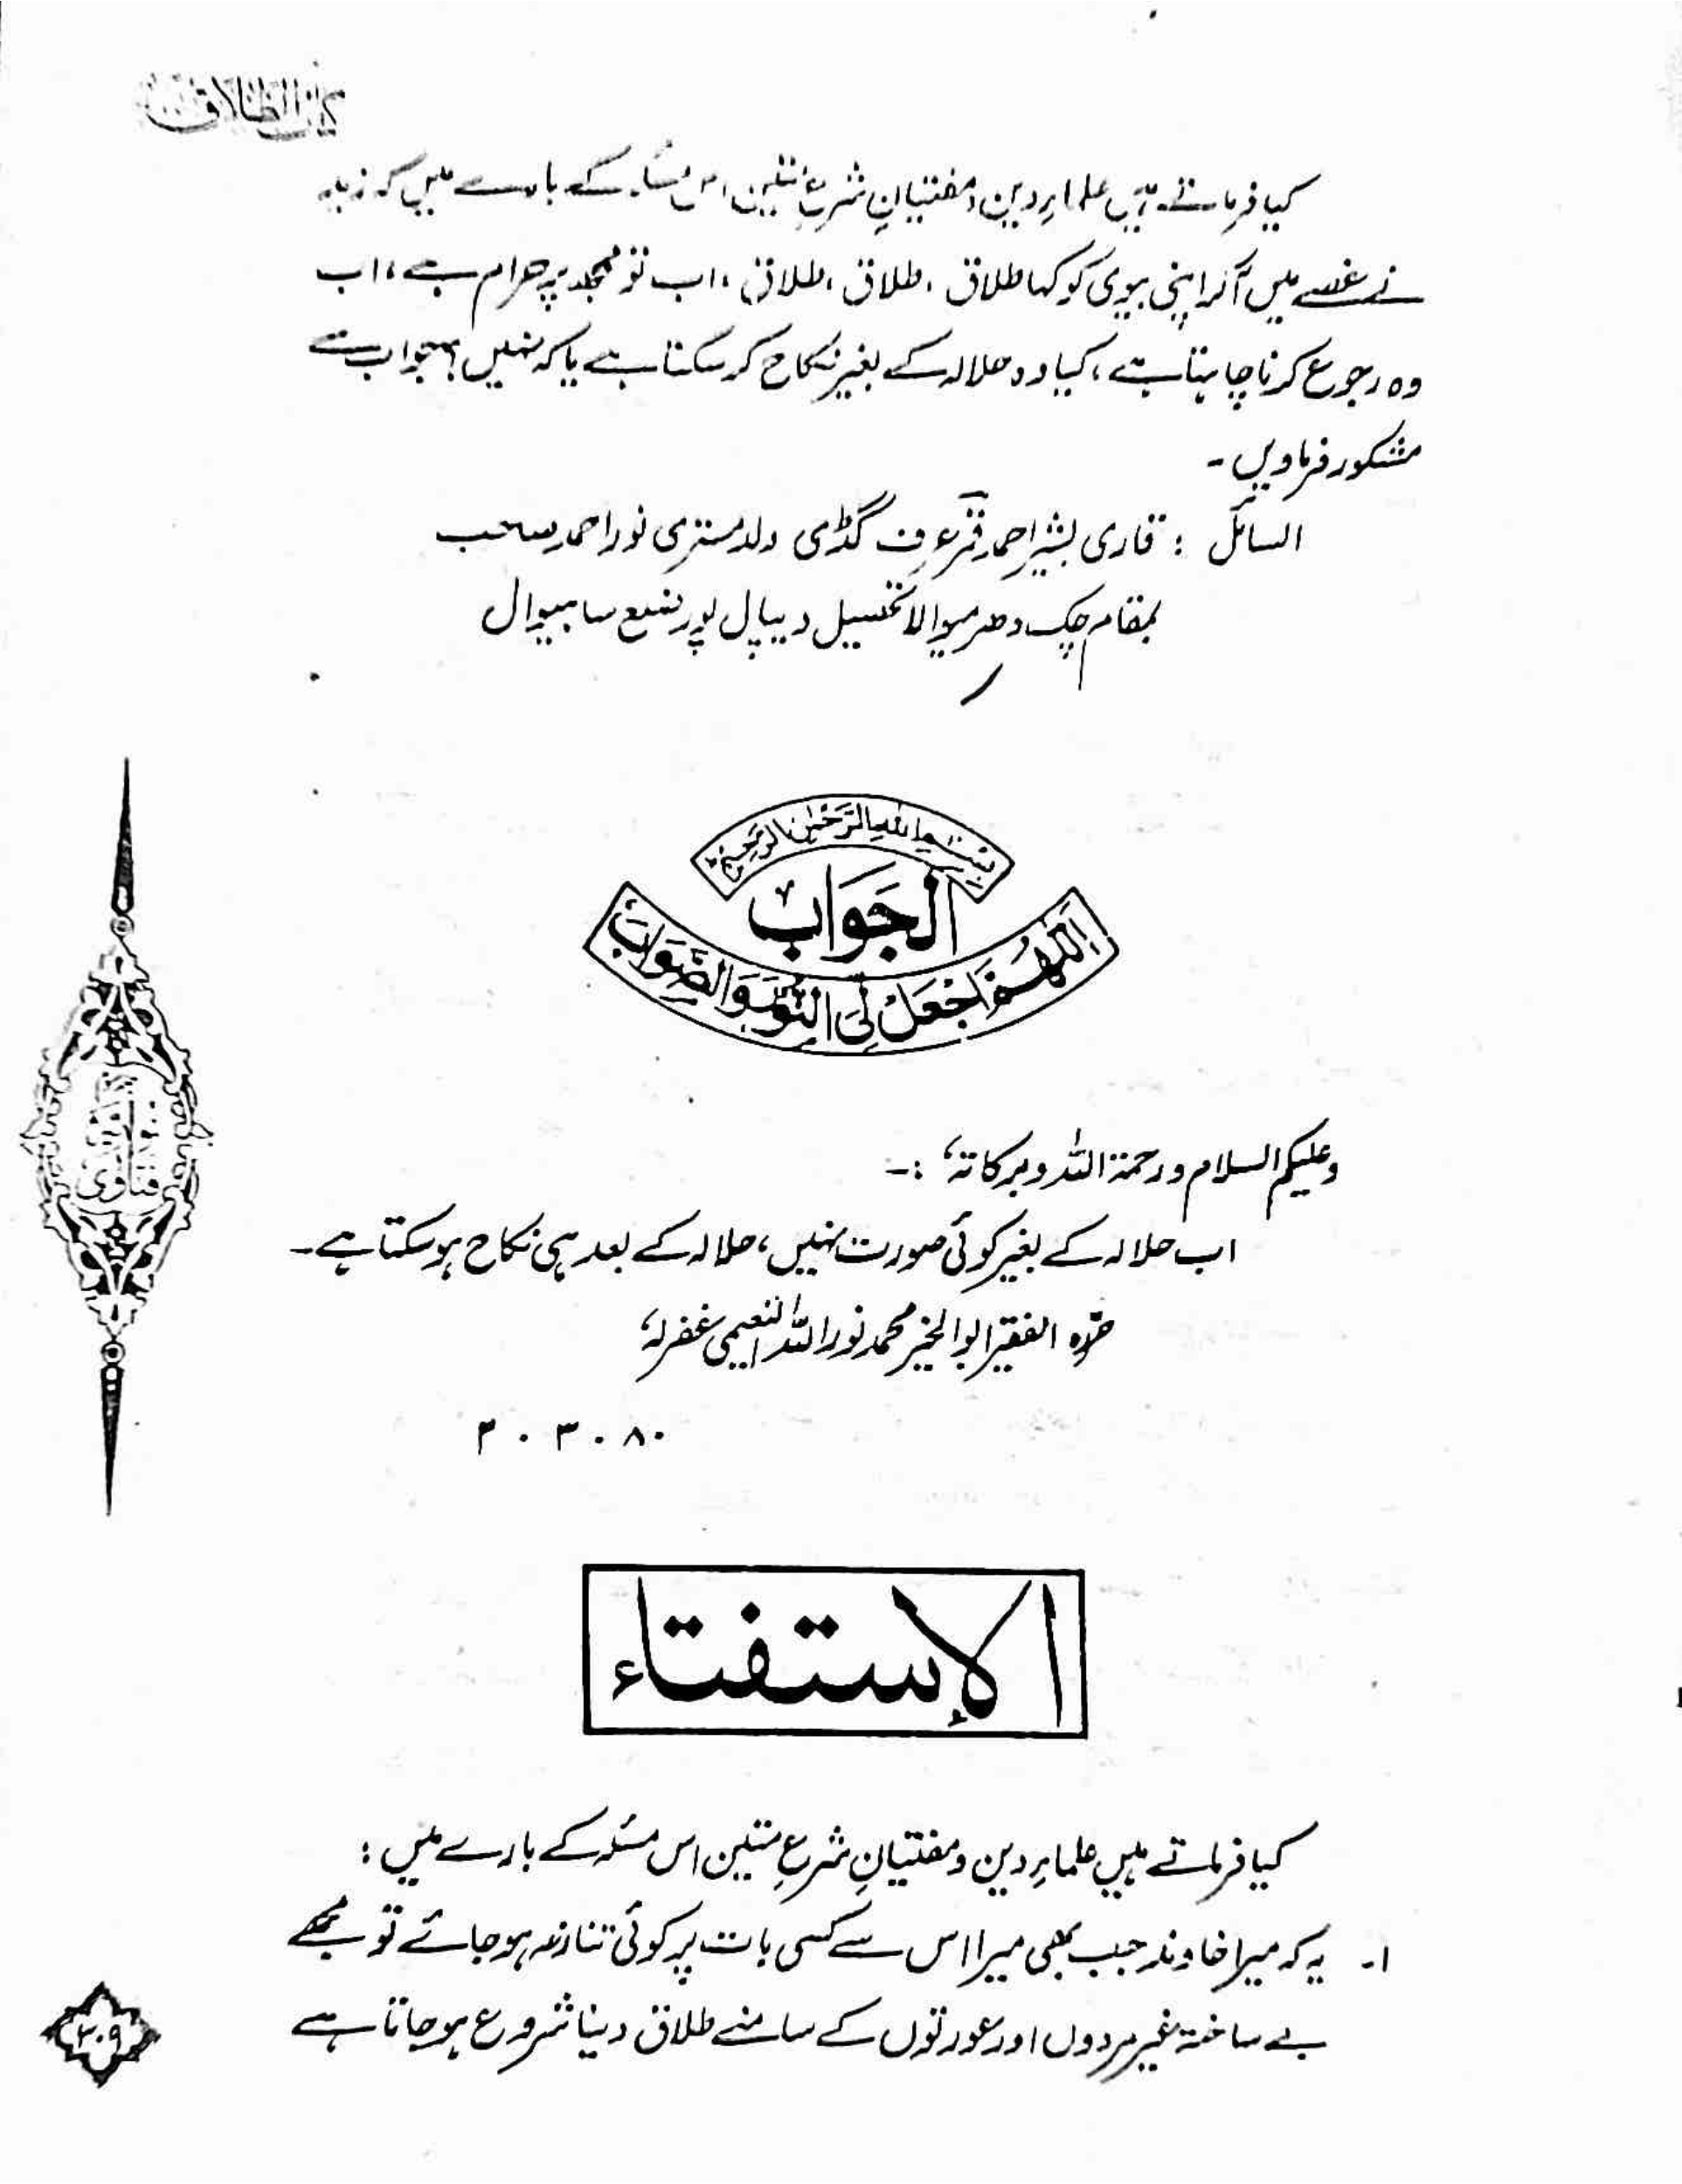 کتاب الطلاق
کیا فرماتے ہیں علماءِ دین و مفتیانِ شرعِ متین اس مسئلہ کے بارے میں کہ زید
نے غصے میں آکر اپنی بیوی کو کہا طلاق ، طلاق ، طلاق ، اب تو مجھ پر حرام ہے ، اب
وہ رجوع کرنا چاہتا ہے ، کیا وہ حلالہ کے بغیر نکاح کر سکتا ہے یا کہ نہیں ؟ جواب سے
مشکور فرماویں ۔
السائل : قاری بشیر احمد قمر عرف گڈی ولد مستری نور احمد صاحب
بمقام چک دھرمیوالا تحصیل دیپال پور ضلع ساہیوال
بِسْمِ اللهِ الرَّحْمٰنِ الرَّحِيْمِ
الجَوَاب
اَللّٰهُمَّ اجْعَلْ لِیَ النُّوْرَ وَالصَّوَابَ
وعلیکم السلام ورحمۃ اللہ وبرکاتہٗ :۔
اب حلالہ کے بغیر کوئی صورت نہیں ، حلالہ کے بعد ہی نکاح ہو سکتا ہے ۔
حررہ الفقیر ابوالخیر محمد نور اللہ النعیمی غفرلہٗ
۳ . ۳ . ۸۰
فتاوی نوریہ
الإستفتاء
کیا فرماتے ہیں علماءِ دین و مفتیانِ شرعِ متین اس مسئلہ کے بارے میں :
۱۔ یہ کہ میرا خاوند جب بھی میرا اس سے کسی بات پر کوئی تنازعہ ہو جائے تو مجھے
بے ساختہ غیر مردوں اور عورتوں کے سامنے طلاق دینا شروع ہو جاتا ہے
۳۰۹